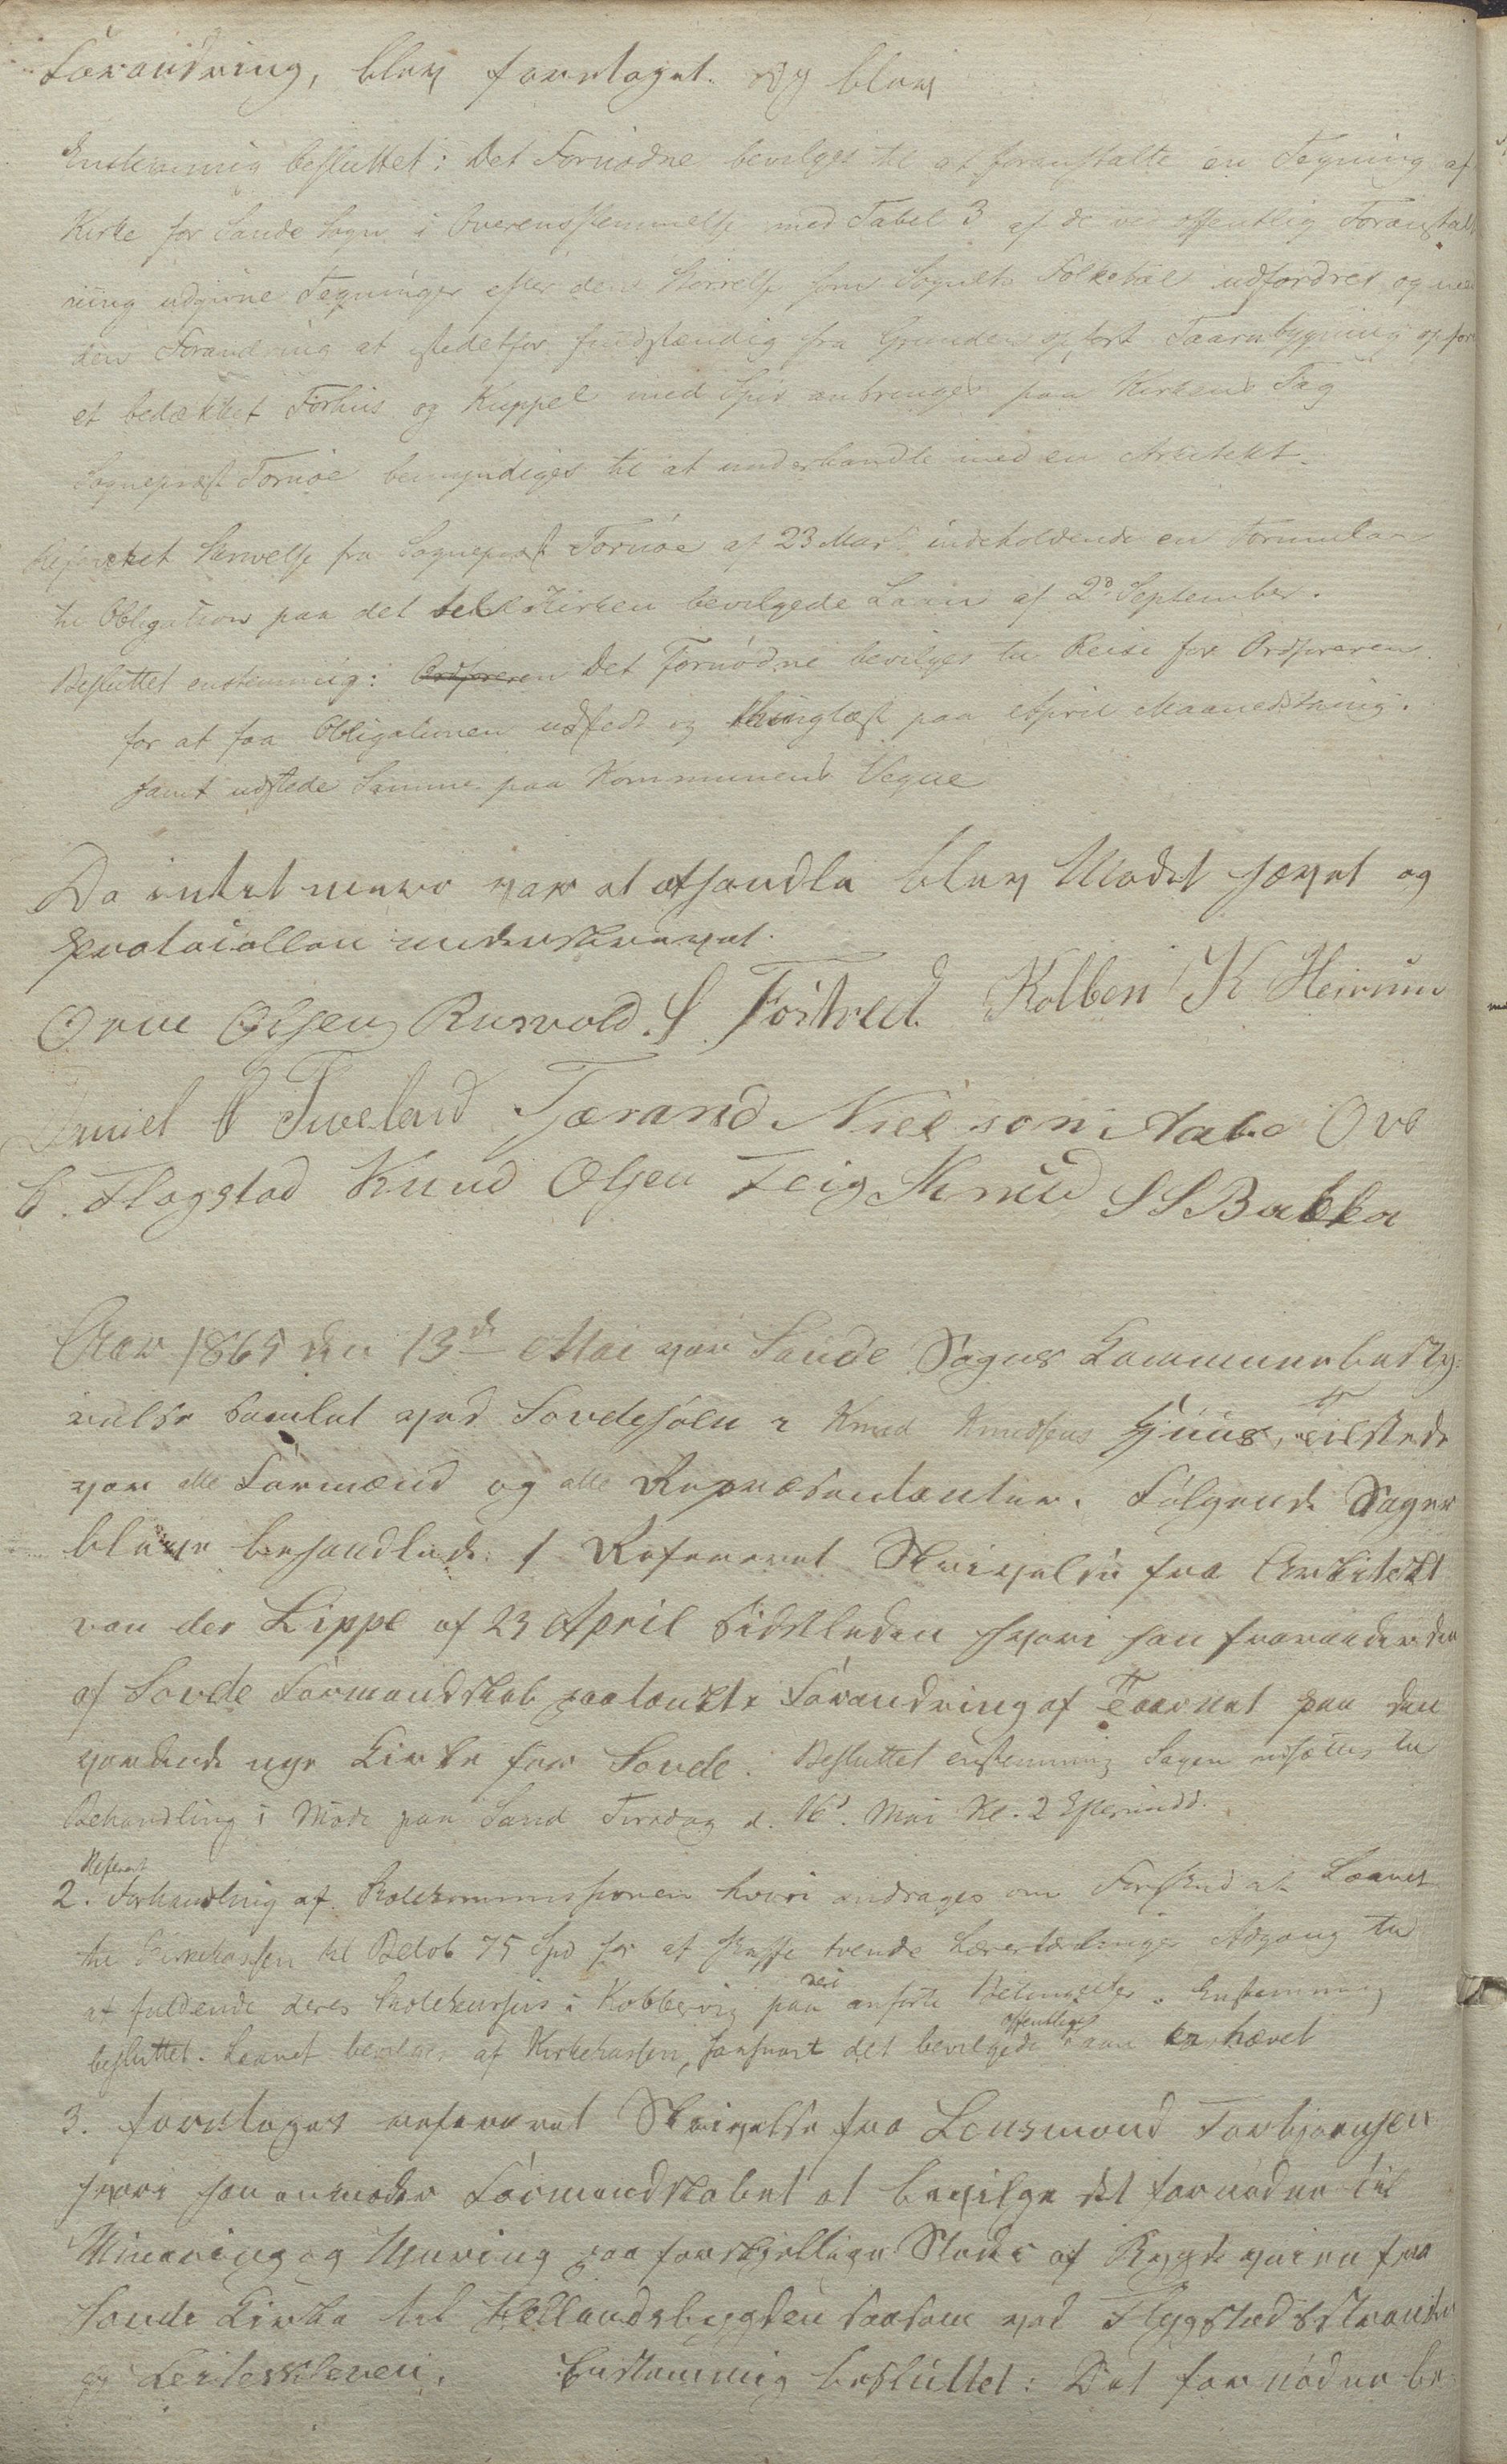 Forandring, blev foretaget. og blev
Enstemmig besluttet: Det Fornødne bevilges til at foranstalte en Tegning af
Kirke for Saude Sogn i Overensstemmelse med Tabel 3 af de ved offentlig Foranstalt
ning udgivne Tegninger efter den Størrelse som Sognets Folketal udfordres og med
den Forandring at istedetfor fuldstændig fra Grunden opført Taarnbygning opføres
et bedækket Forhus og Kuppel med Spir anbringes paa Kirkens Tag
Sognepræst Tornøe bemyndiges til at underhandle med en Arkitekt.
Refereret Skrivelse fra Sognepræst Tornøe af 23 Marts indeholdende en Formular
til Obligation paa det til Kirken bevilgede Laan af 2d September.
Besluttet enstemmig: Ordføreren Det Fornødne bevilges til Reise for Ordføreren
for at faa Obligationen udstedt og thinglæst paa April Maanedsthing.
samt udstede Samme paa Kommunens Vegne
Da intet mere var at afhandle blev Mødet hævet og
Protocollen underskrevet.
Orm Olsen Rusvold. S Fostved. Kolben K Heirum
Daniel O Tveteraad Tærand Nielson Aabø Ove
C. Flogstad Knud Olsen Feig Knud S S Bakka
Aar 1865 den 13de Mai var Saude Sogns Kommunebesty:
relse samlet ved Sovdesølen i Knud Knudsens Huus, tilstede
var alle Formænd og alle Repræsentanter. Følgende Sager
bleve behandlede: 1 Refereret Skrivelse fra Arkitekt
van der Lippe af 23 April sidstleden hvori han fraraader den
af Sovde Formandskab paatænkte Forandring af Taarnet paa den
vordende nye Kirke for Sovde. Besluttet enstemmig Sagen udsættes til
Behandling i Møde paa Sand Tirsdag d. 16d. Mai Kl. 2 Eftermidd.
2. Referert Forhandling af Skolekommissionen hvori andrages om Forskud at Laanes
til Kirkekassen til Beløb 75 Spd for at skaffe tvende Lærerlærlinger Adgang til
at fuldende deres Skolekursus i Kobbervig paa deri anførte Betingelser. Enstemmig
besluttet. Laanet bevilges af Kirkekassen, saasnart det bevilgede offentlige Laan er hævet
3. foretoges refereret Skrivelse fra Lensmand Torbjørnsen
hvori han anmoder Formandskabet at bevilge det fornødne til
Minering og Muring paa forskjellige Steder af Bygdeveien fra
Saude Kirke til Hellandsbygden saasom ved Flogstadsstranden
og Leiteskleven. Enstemmig besluttet: Det fornødne be